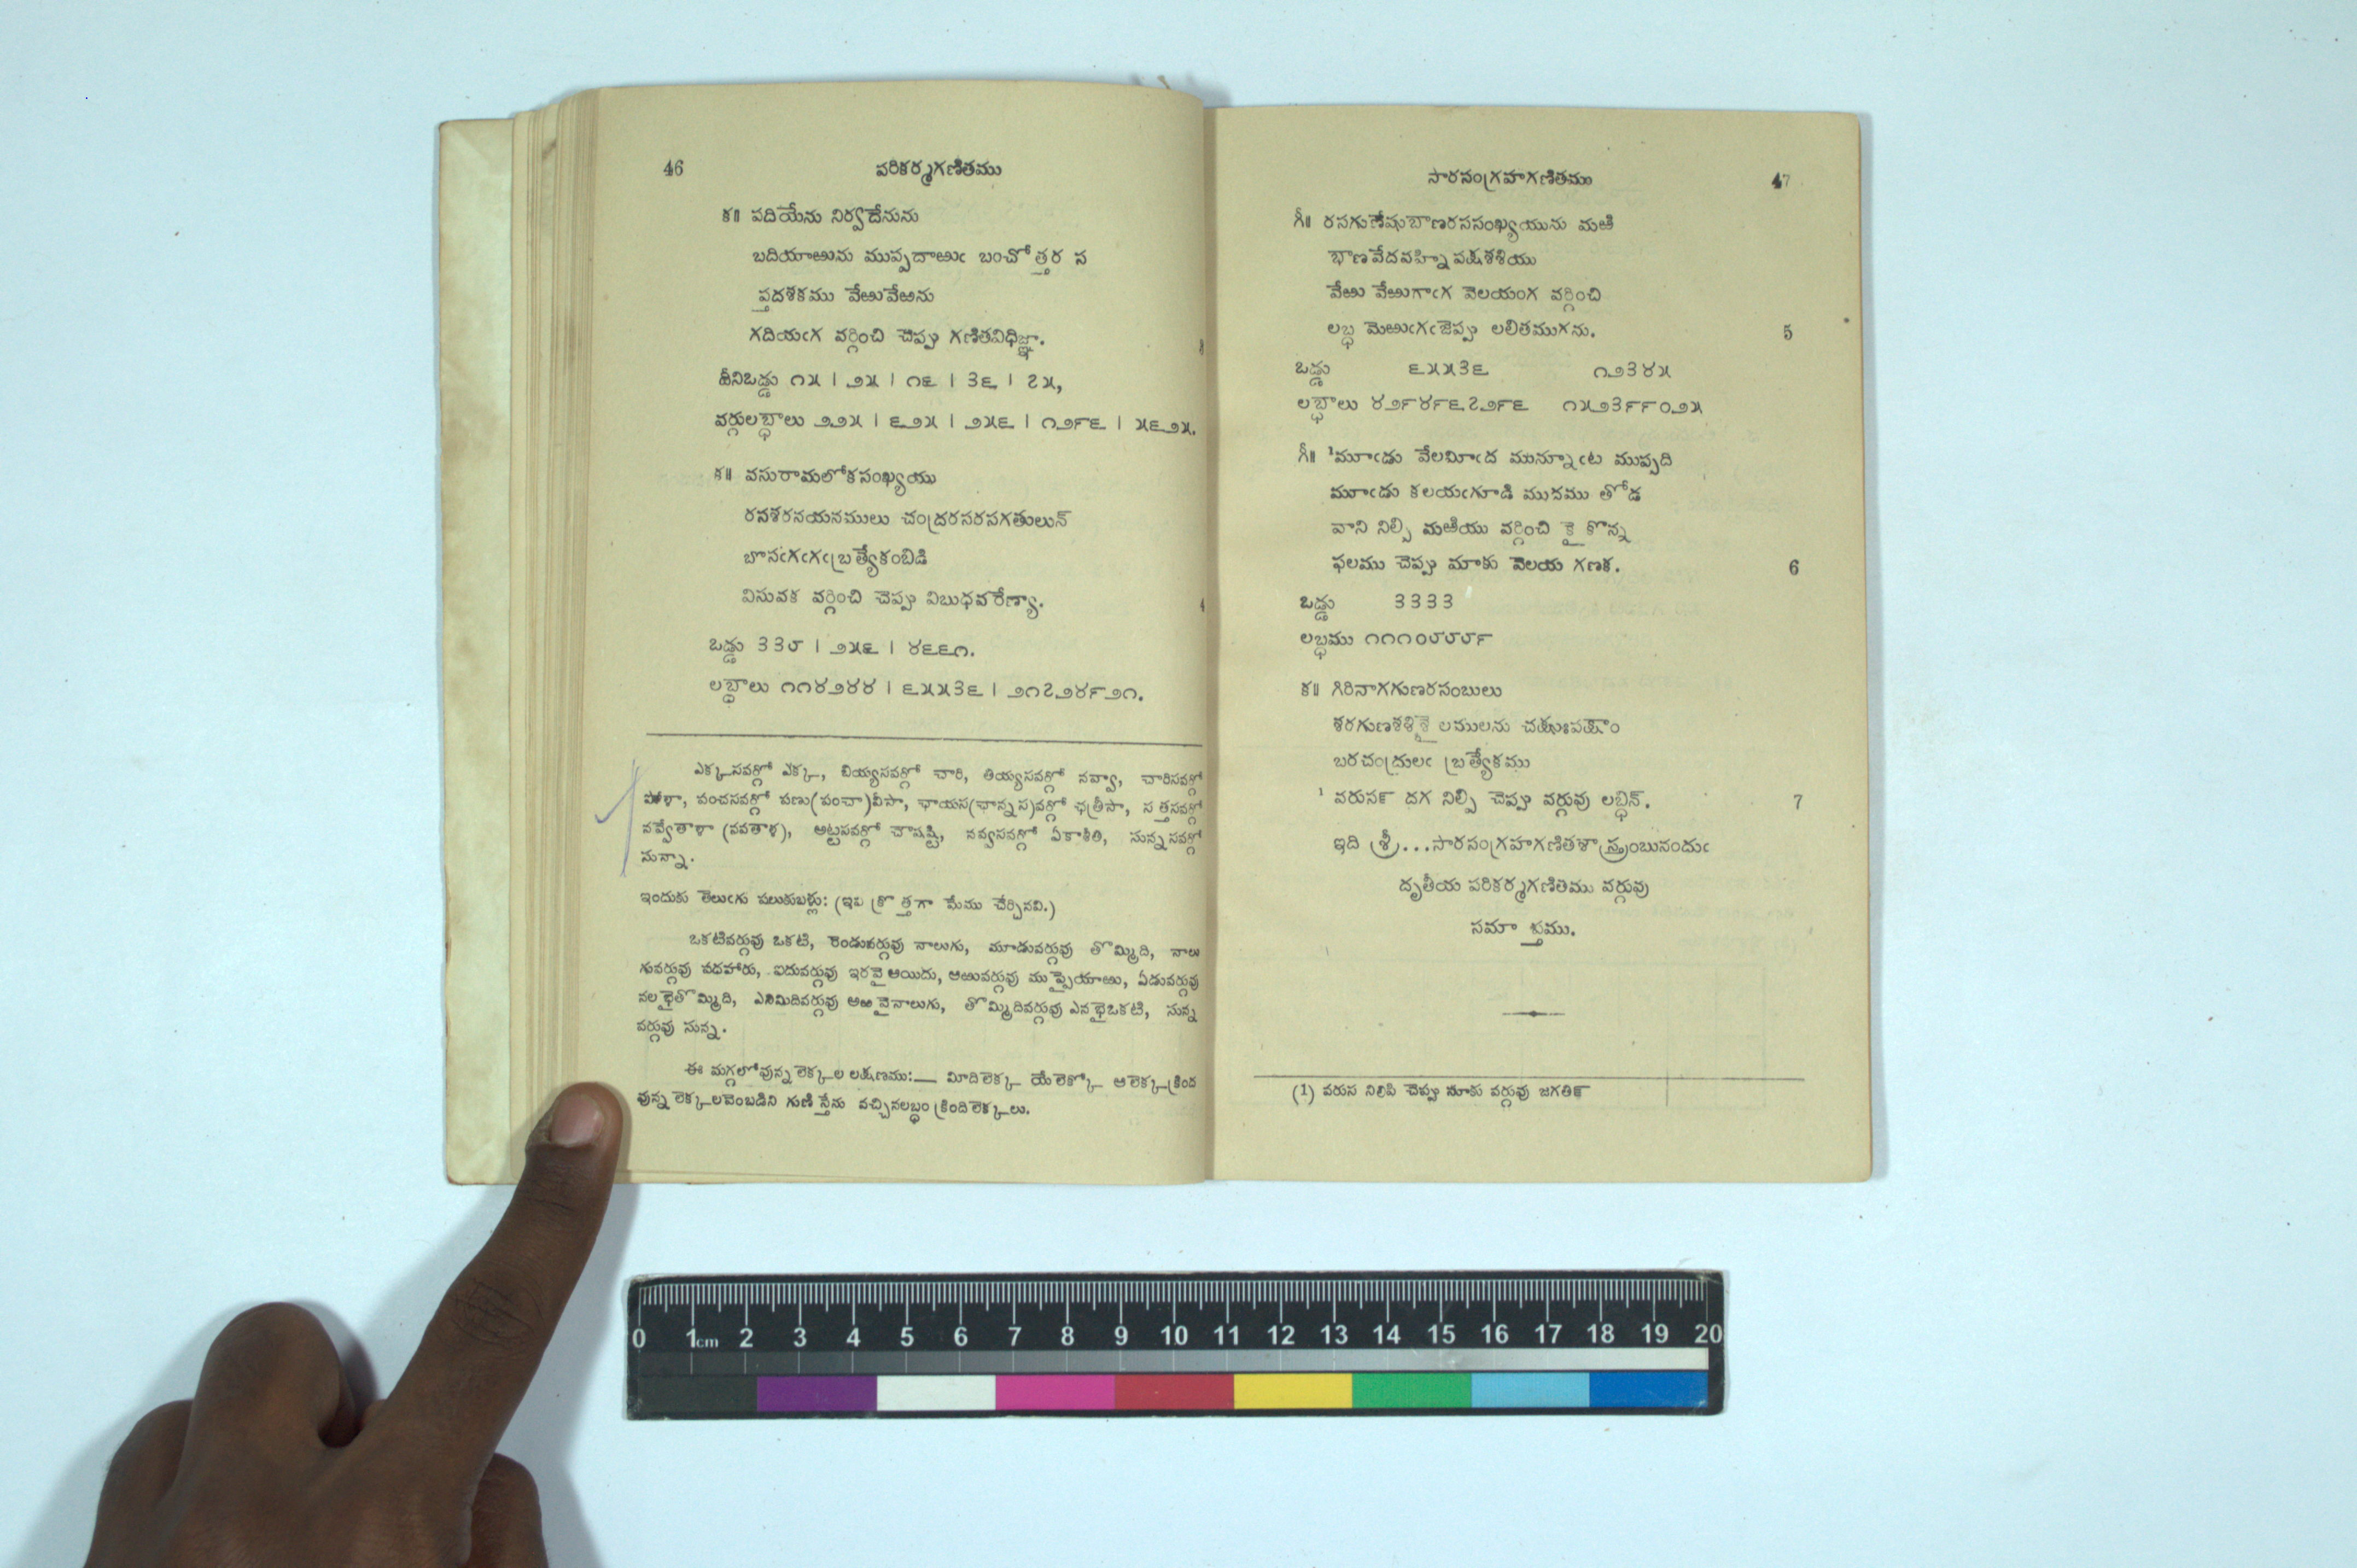 46
పరికర్మగణితము
క॥ పదియేను నిర్వదేనును
బదియాఱును ముప్పదాఱుఁ బంచోత్తర స
ప్తదశకము వేఱువేఱను
గదియఁగ వర్గించి చెప్పు గణితవిధిజ్ఞా.
దీనిఒడ్డు ౧౫ | ౨౫ | ౧౬ | ౩౬ | ౭౫,
వర్గులబ్ధాలు ౨౨౫ | ౬౨౫ | ౨౫౬ | ౧౨౯౬ | ౫౬౨౫.
క॥ వసురామలోకసంఖ్యయు
రసశరనయనములు చంద్రరసరసగతులున్
బొసఁగఁగఁబ్రత్యేకంబిడి
విసువక వర్గించి చెప్పు విబుధవరేణ్యా.
4
ఒడ్డు ౩౩౮ | ౨౫౬ | ౪౬౬౧.
లబ్ధాలు ౧౧౪౨౪౪ | ౬౫౫౩౬ | ౨౧౭౨౪౯౨౧.
ఎక్కసవర్గో ఎక్క, బియ్యసవర్గో చారి, తియ్యసవర్గో నవ్వా, చారిసవర్గో
సోళా, పంచసవర్గో పణు(పంచా)వీసా, ఛాయస(ఛాన్నస)వర్గో ఛత్రీసా, సత్తసవర్గో
నవ్వేతాళా (నవతాళ), అట్టసవర్గో చౌషష్టి, నవ్వసవర్గో ఏకాశీతి, సున్నసవర్గో
సున్నా.
ఇందుకు తెలుఁగు పలుకుబళ్లు: (ఇవి క్రొత్తగా మేము చేర్చినవి.)
ఒకటివర్గువు ఒకటి, రెండువర్గువు నాలుగు, మూడువర్గువు తొమ్మిది, నాలు
గువర్గువు పదహారు, ఐదువర్గువు ఇరవైఆయిదు, ఆఱువర్గువు ముప్పైయాఱు, ఏడువర్గువు
నలభైతొమ్మిది, ఎనిమిదివర్గువు అఱవైనాలుగు, తొమ్మిదివర్గువు ఎనభైఒకటి, సున్న
వర్గువు సున్న.
ఈ మగ్గలోవున్న లెక్కల లక్షణము:— మీదిలెక్క యేలెక్కో ఆలెక్కక్రింద
వున్న లెక్కలవెంబడిని గుణిస్తేను వచ్చినలబ్ధం క్రిందిలెక్కలు.
సారసంగ్రహగణితము
47
గీ॥ రసగుణేషుబాణరససంఖ్యయును మఱి
బాణవేదవహ్ని పక్షశశియు
వేఱు వేఱుగాఁగ వెలయంగ వర్గించి
లబ్ధ మెఱుఁగఁజెప్పు లలితముగను.
5
ఒడ్డు ౬౫౫౩౬ ౧౨౩౪౫
లబ్ధాలు ౪౨౯౪౯౬౭౨౯౬ ౧౫౨౩౯౯౦౨౫
గీ॥ ¹మూఁడు వేలమీఁద మున్నూఁట ముప్పది
మూఁడు కలయఁగూడి ముదము తోడ
వాని నిల్పి మఱియు వర్గించి కైకొన్న
ఫలము చెప్పు మాకు వెలయ గణక.
6
ఒడ్డు ౩౩౩౩
లబ్ధము ౧౧౧౦౮౮౮౯
క॥ గిరినాగగుణరసంబులు
శరగుణశశిశైలములను చక్షుఃపక్షాం
బరచంద్రులఁ బ్రత్యేకము
¹ వరుస౯ దగ నిల్పి చెప్పు వర్గువు లబ్ధిన్.
7
ఇది శ్రీ...సారసంగ్రహగణితశాస్త్రంబునందుఁ
దృతీయ పరికర్మగణితము వర్గువు
సమాప్తము.
(1) వరుస నిలిపి చెప్పు మాకు వర్గువు జగతి౯
0 1cm 2 3 4 5 6 7 8 9 10 11 12 13 14 15 16 17 18 19 20